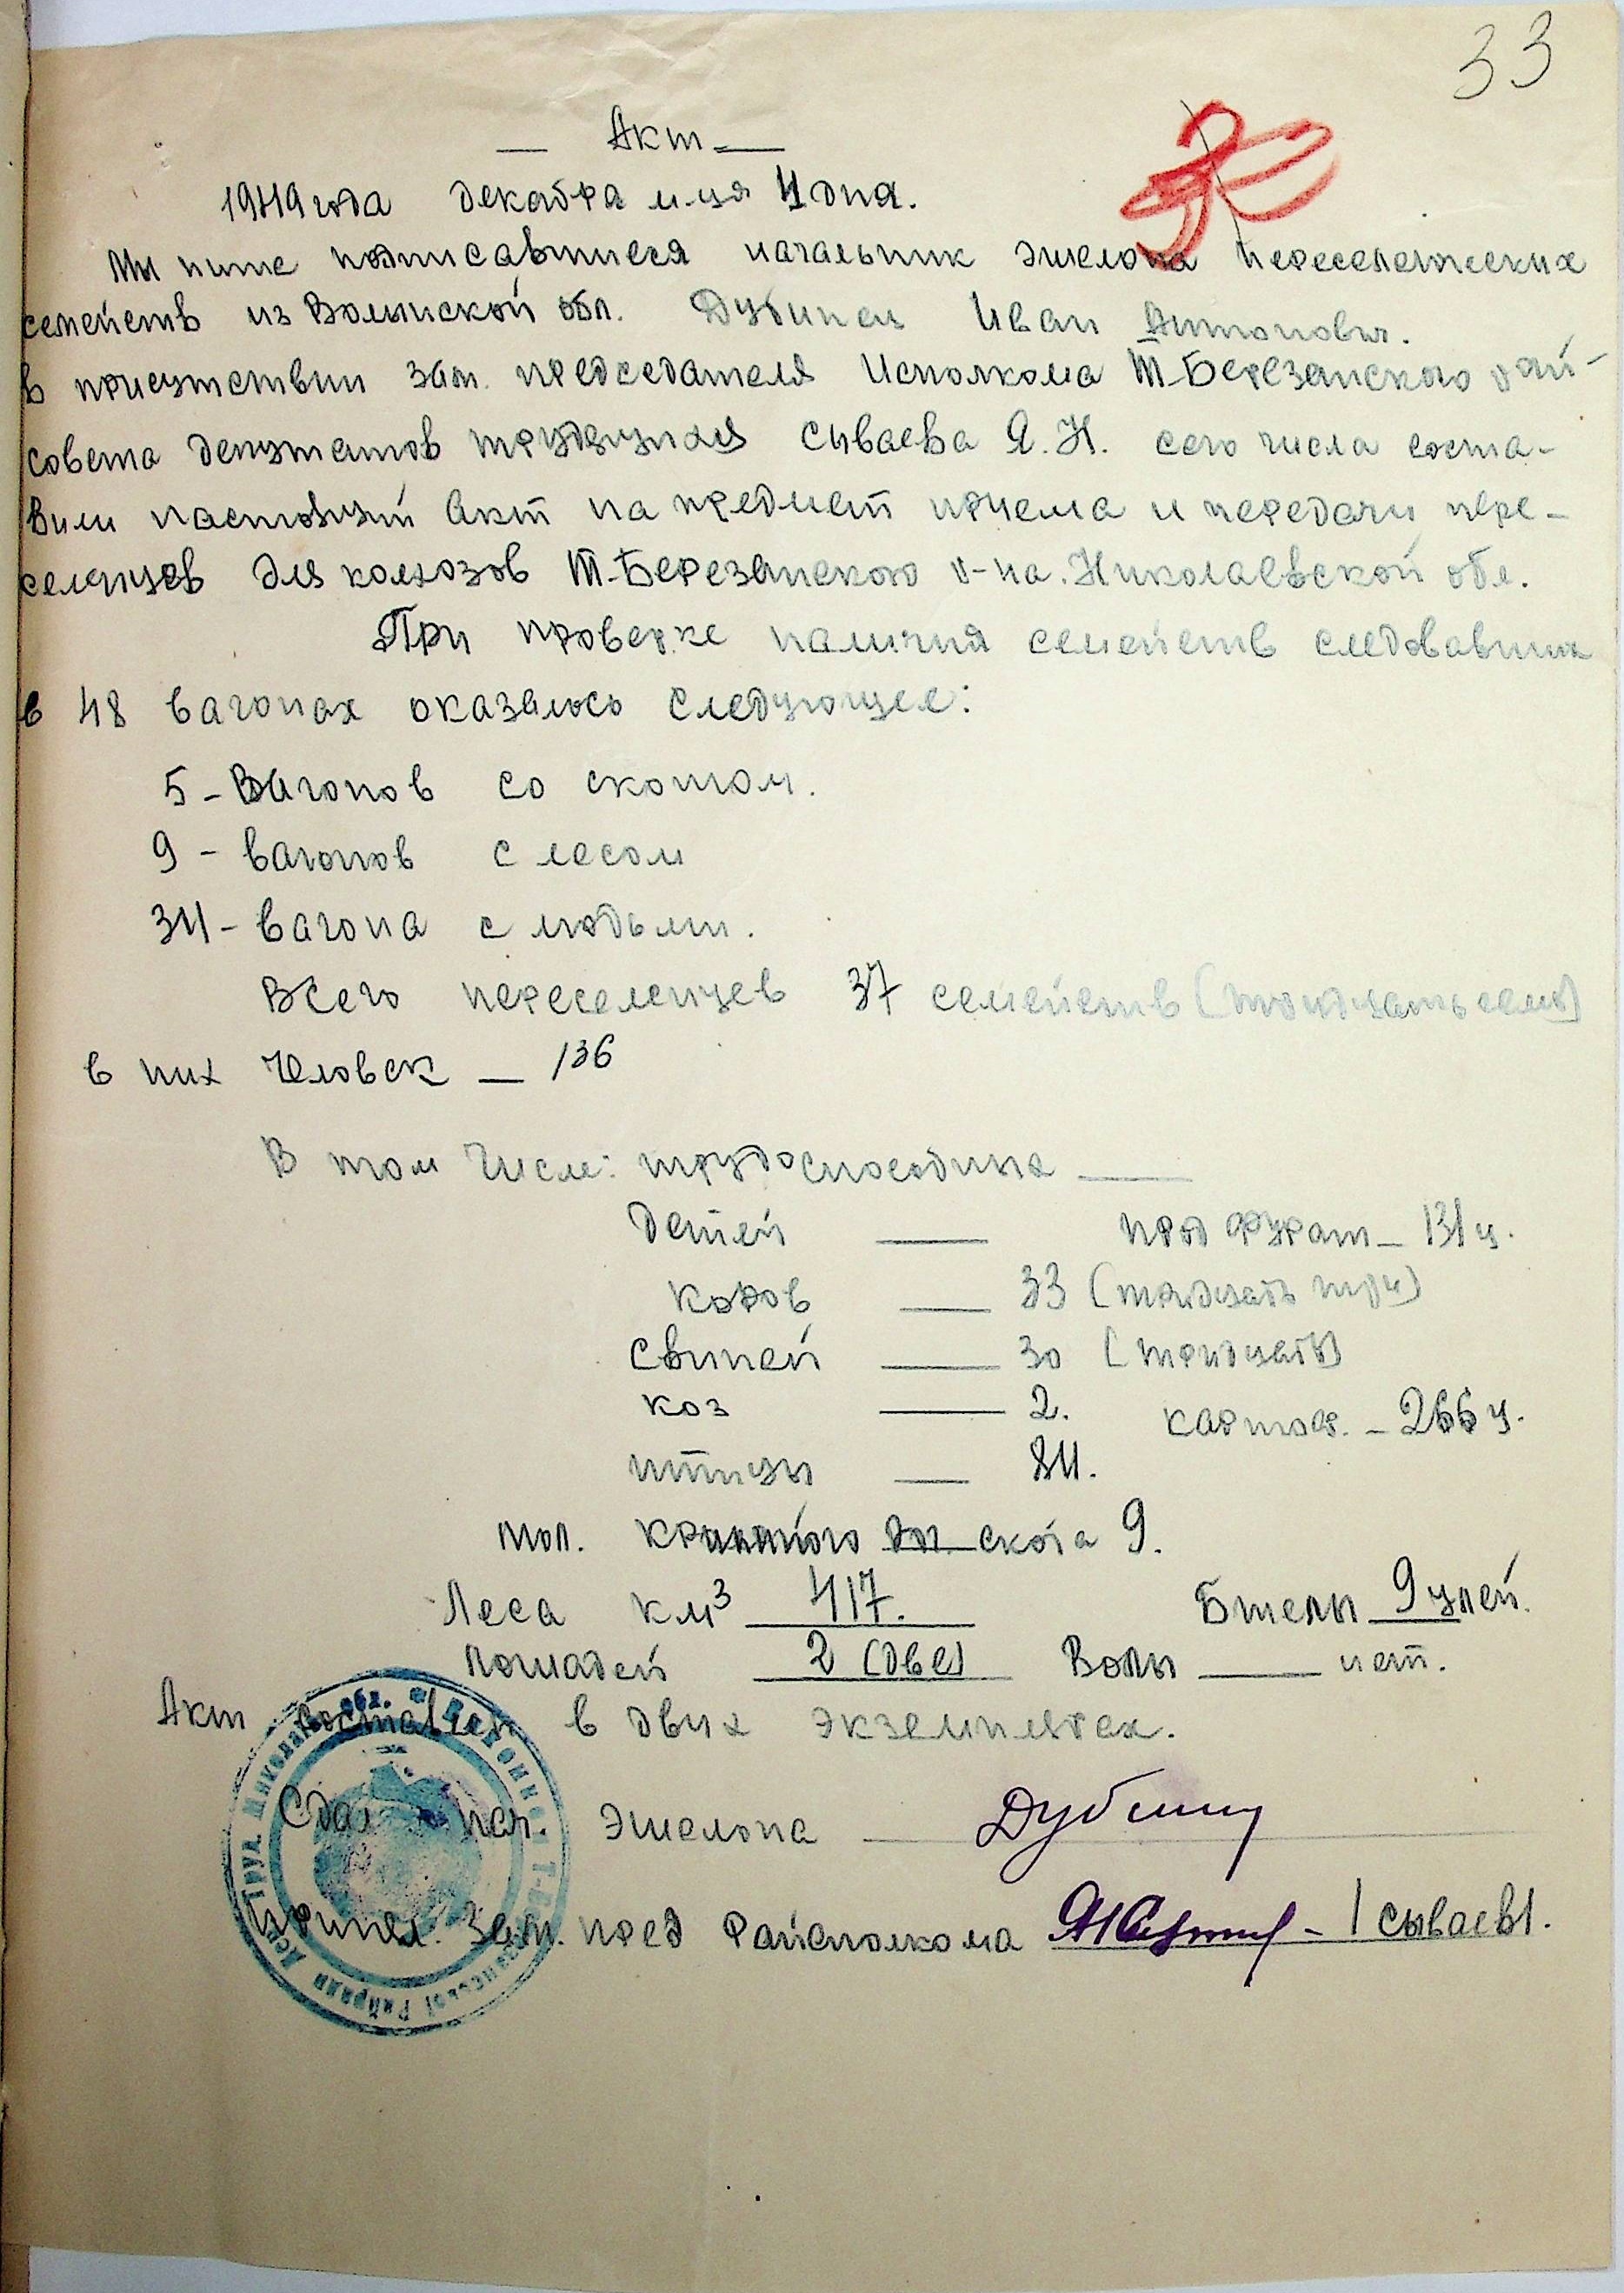 33
— Акт —
1949 года декабря м-ця 4 дня.
Мы ниже подписавшиеся начальник эшелона переселенческих
семейств из Волынской обл. Дубинец Иван Антонович.
в присутствии зам. председателя Исполкома Т-Березанского рай-
совета депутатов трудящихся Сываева Я.Н. сего числа соста-
вили настоящий акт на предмет приема и передачи пере-
селенцев для колхозов Т-Березанского р-на. Николаевской обл.
При проверке наличия семейств следовавших
в 48 вагонах оказалось следующее:
5 - Вагонов со скотом.
9 - вагонов с лесом
34 - вагона с людьми.
Всего переселенцев 37 семейств (тридцать семь)
в них человек — 136
В том числе: трудоспособных —
Детей — прод фураж — 131 ц.
коров — 33 (тридцать три)
свиней — 30 (тридцать)
коз — 2. картоф. — 266 ц.
птицы — 84.
мол. крупного скота 9.
Леса км³ 417. Бжелы 9 улей.
лошадей 2 (две) Волы — нет.
Акт составлен в двух экземплярах.
Сдал нач. эшелона — Дубинец
Принял. Зам. пред райсполкома — (Сываев).